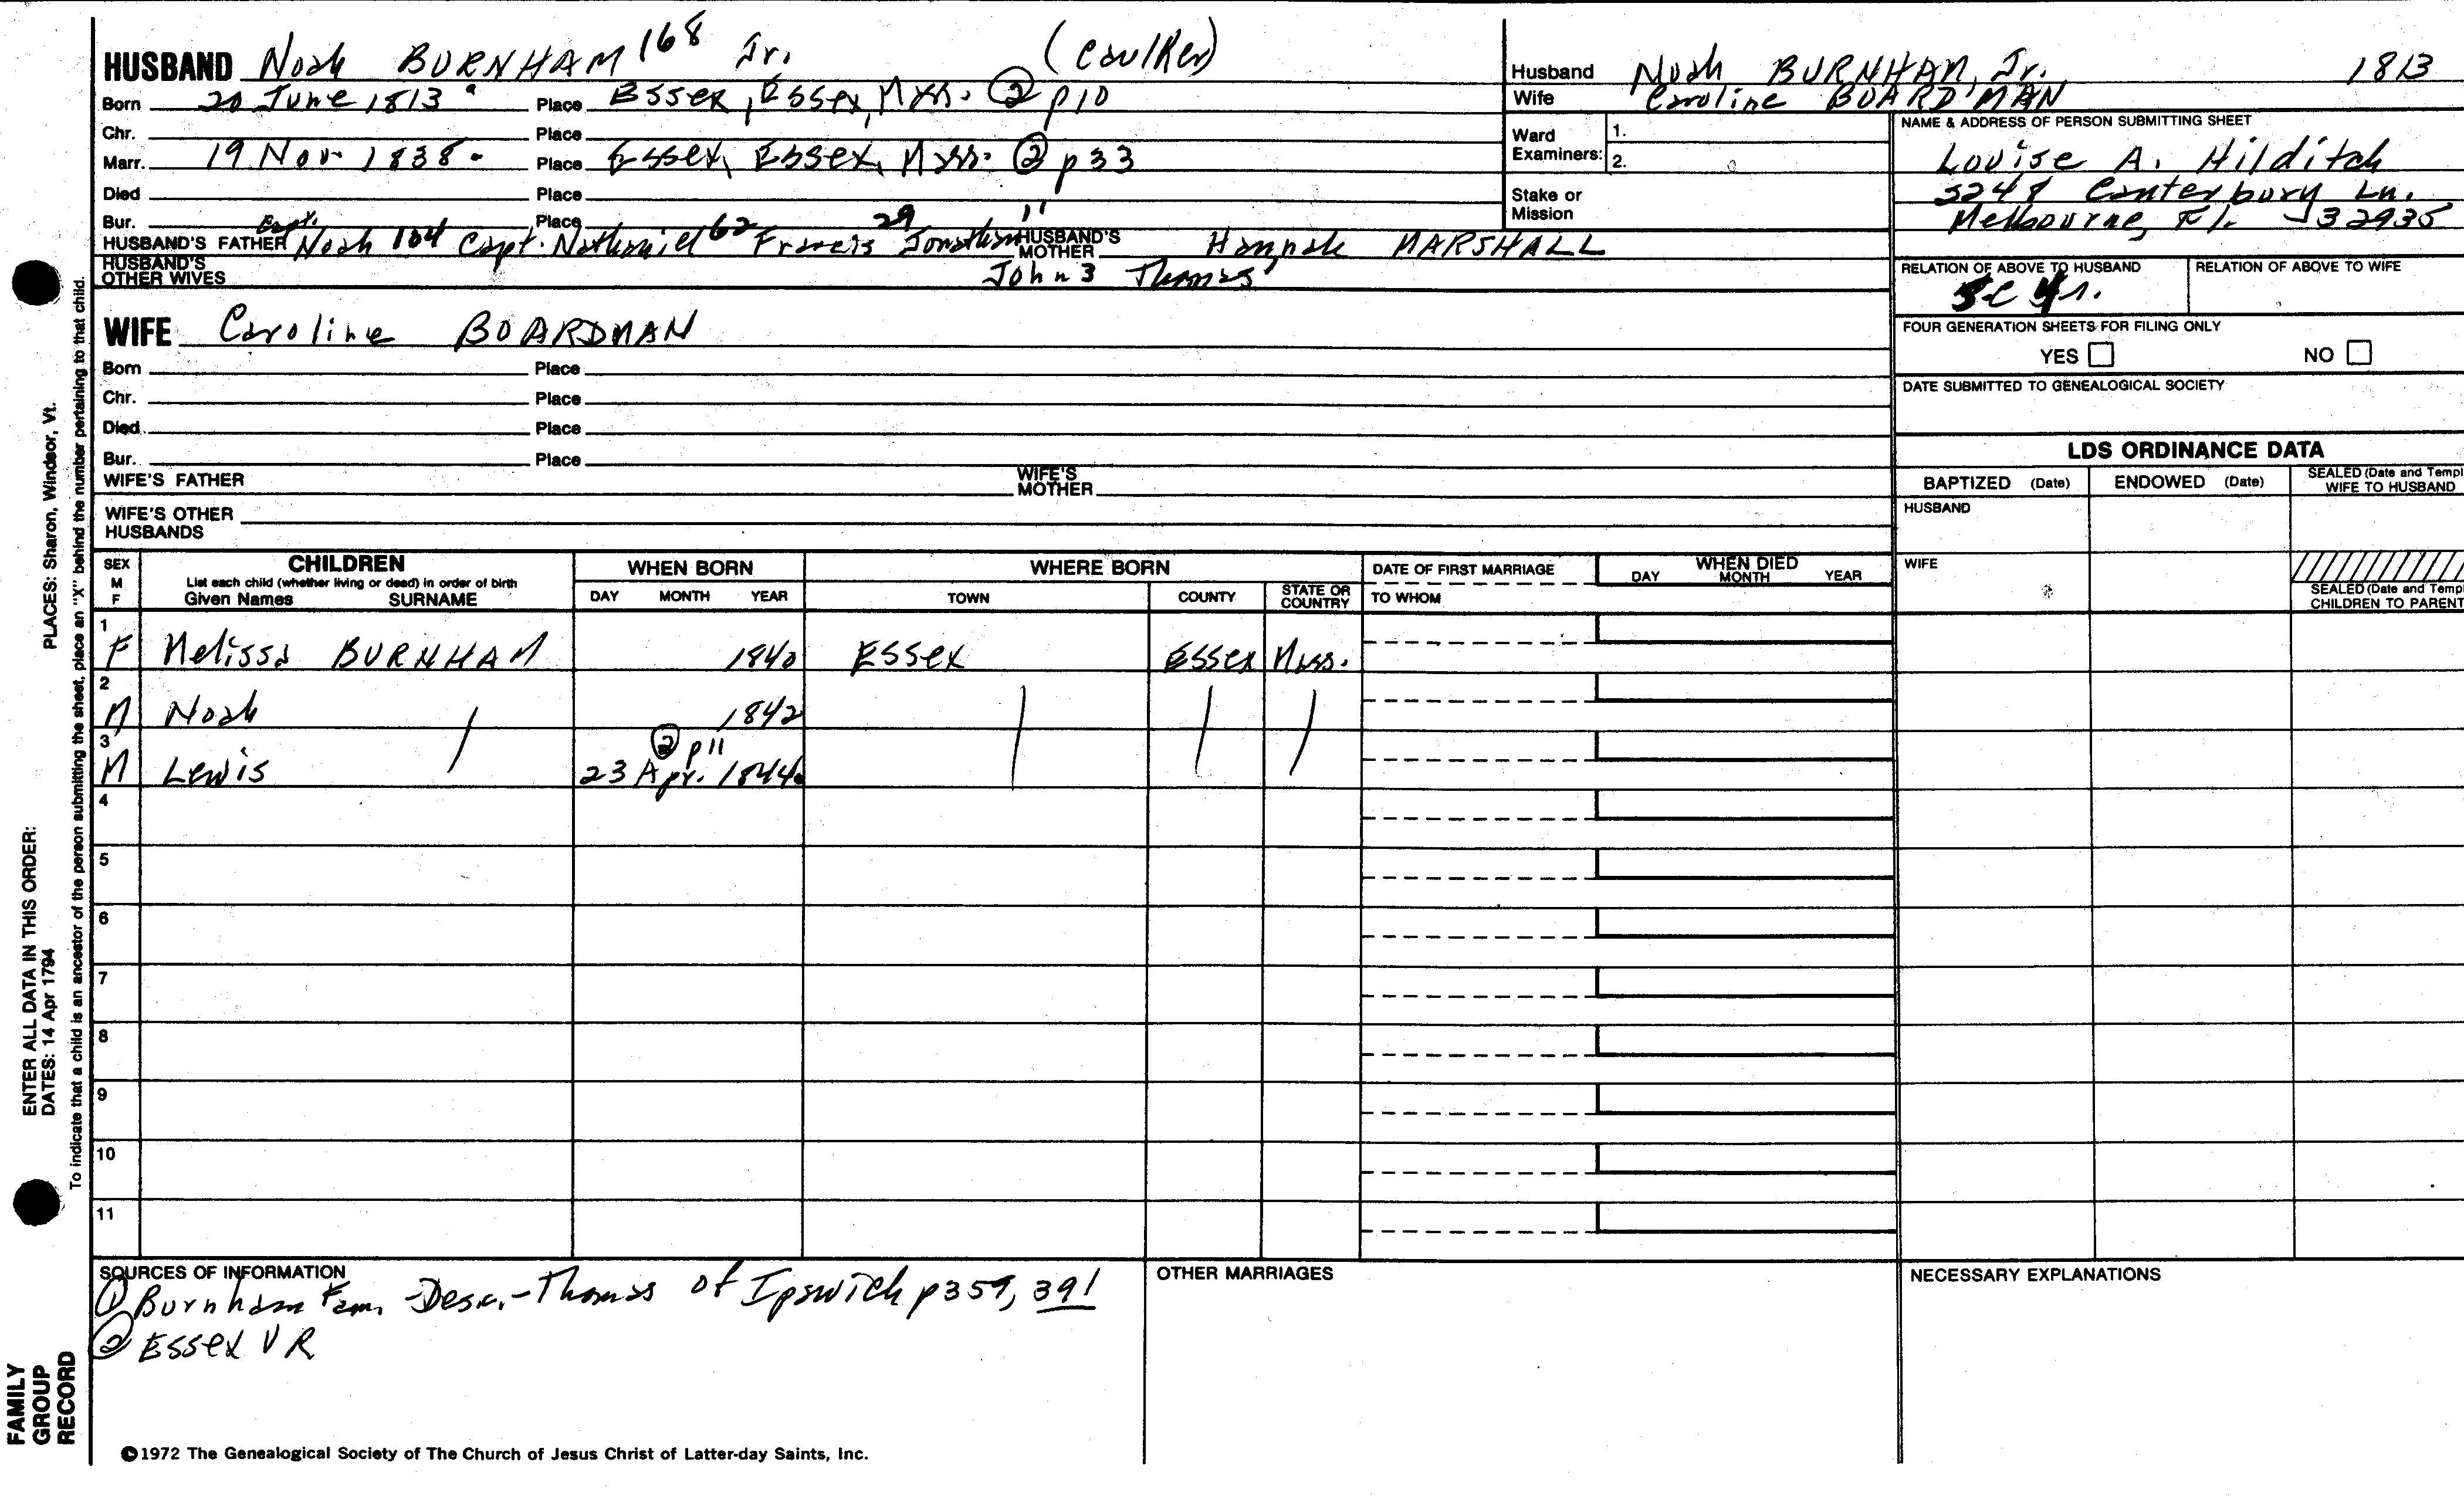 HUSBAND Noah BURNHAM 168 Jr. (Caulker)
Born 20 June 1813 Place Essex, Essex, Mass. ② p10
Chr. Place
Marr. 19 Nov. 1838 Place Essex, Essex, Mass. ② p33
Died Place
Bur. Place
HUSBAND'S FATHER Capt. Noah 104 Capt. Nathaniel 62 Francis 29 Jonathan 11 John 3 Thomas 1
HUSBAND'S MOTHER Hannah MARSHALL
HUSBAND'S OTHER WIVES
WIFE Caroline BOARDMAN
Born Place
Chr. Place
Died Place
Bur. Place
WIFE'S FATHER WIFE'S MOTHER
WIFE'S OTHER HUSBANDS
Husband Noah BURNHAM, Jr. 1813
Wife Caroline BOARDMAN
Ward Examiners: 1. 2.
Stake or Mission
NAME & ADDRESS OF PERSON SUBMITTING SHEET
Louise A. Hilditch
Canterbury Ln.
Melbourne, Fl. 32935
RELATION OF ABOVE TO HUSBAND RELATION OF ABOVE TO WIFE
FOUR GENERATION SHEETS FOR FILING ONLY
YES NO
DATE SUBMITTED TO GENEALOGICAL SOCIETY
LDS ORDINANCE DATA
BAPTIZED (Date) ENDOWED (Date) SEALED (Date and Templ WIFE TO HUSBAND
HUSBAND
WIFE
SEALED (Date and Templ CHILDREN TO PARENT
SEX M F CHILDREN List each child (whether living or dead) in order of birth Given Names SURNAME WHEN BORN DAY MONTH YEAR WHERE BORN TOWN COUNTY STATE OR COUNTRY DATE OF FIRST MARRIAGE TO WHOM WHEN DIED DAY MONTH YEAR
1 F Melissa BURNHAM 1840 Essex Essex Mass.
2 M Noah 1842
3 M Lewis ② p11 23 Apr. 1844
4
5
6
7
8
9
10
11
SOURCES OF INFORMATION
① Burnham Fam. -Desc.-Thomas of Ipswich p359, 391
② Essex VR
OTHER MARRIAGES
NECESSARY EXPLANATIONS
©1972 The Genealogical Society of The Church of Jesus Christ of Latter-day Saints, Inc.
FAMILY GROUP RECORD
ENTER ALL DATA IN THIS ORDER:
DATES: 14 Apr 1794 PLACES: Sharon, Windsor, Vt.
To indicate that a child is an ancestor of the person submitting the sheet, place an "X" behind the number pertaining to that child.